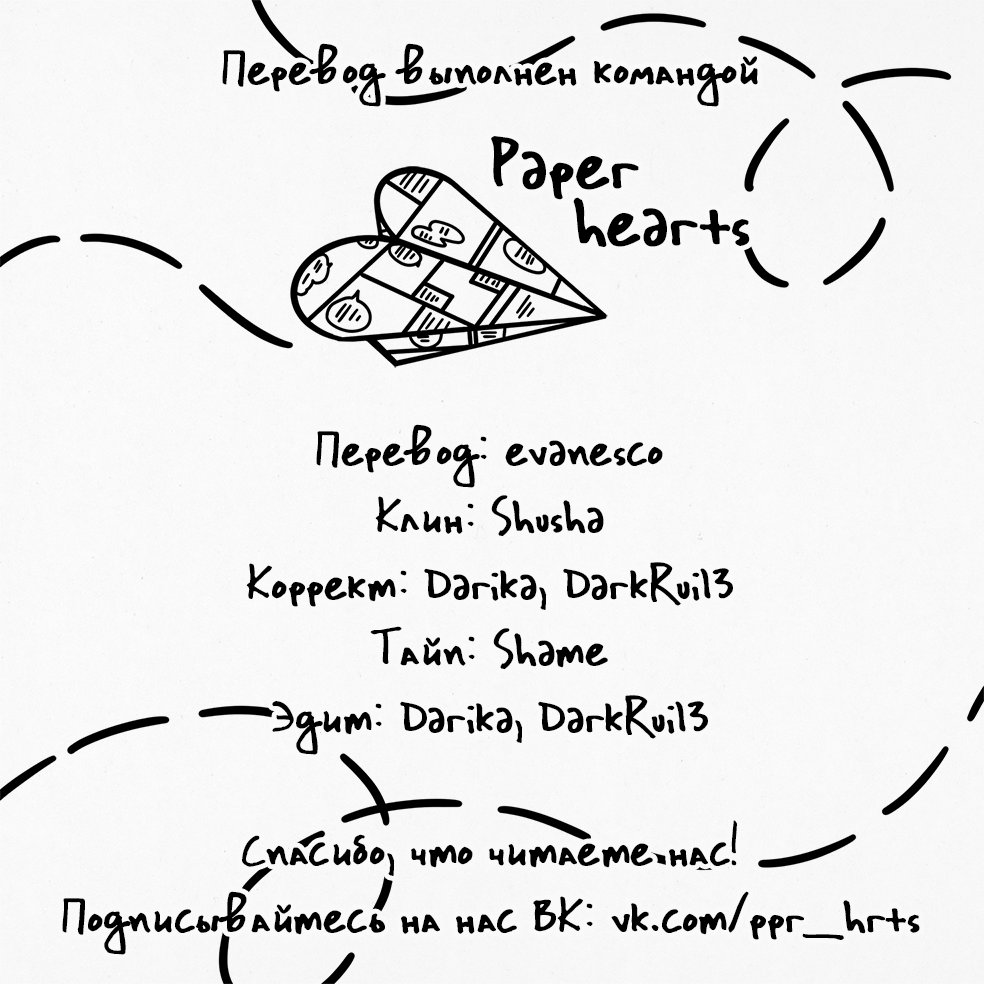 Перевод выполнен командой
Paper
hearts
Перевод: evanesco
Клин: Shusha
Коррект: Darika, DarkRui13
Тайп: Shame
Эдит: Darika, DarkRui13
Спасибо, что читаете нас!
Подписывайтесь на нас ВК: vk.com/ppr_hrts